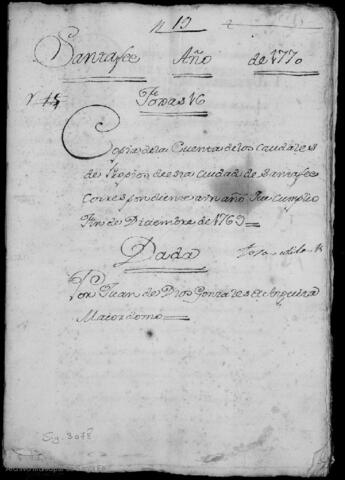 n 15
Santafee Año de 1770
Foxas 16
Copia de la Cuenta de los Caudales
de Propios de esta Ciudad de Santafee
Correspondiente a un año que cumplio
Fin de Diciembre de 1769
Dada
Por Juan de Dios Gonzales de
Maiordomo
Sig. 3078